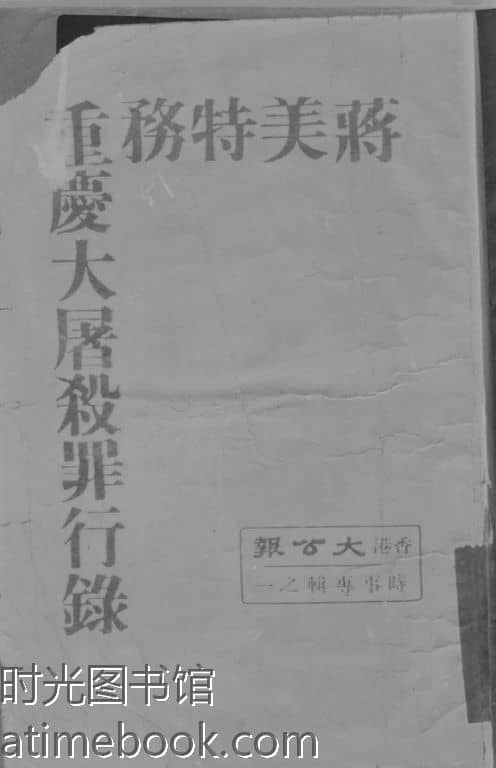 蔣美特務
重慶大屠殺罪行錄
香港大公報
時事專輯之一
时光图书馆
atimebook.com